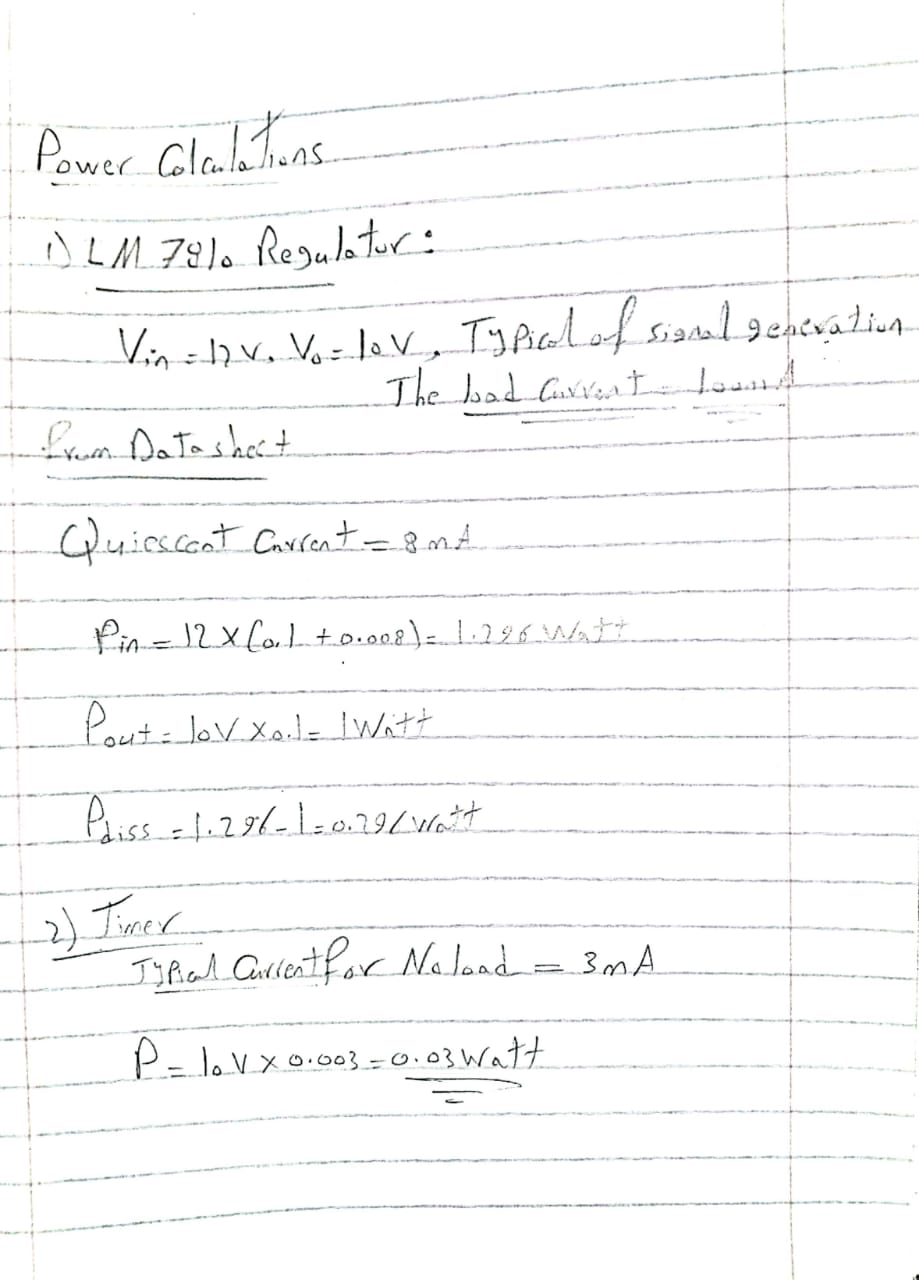 Power Calculations
1) LM 7810 Regulator:
Vin = 12 V, Vo = 10V, Typical of signal generation
The load Current = 100mA
from Datasheet
Quiescent Current = 8 mA
Pin = 12 X (0.1 + 0.008) = 1.296 Watt
Pout = 10V X 0.1 = 1 Watt
Pdiss = 1.296 - 1 = 0.296 Watt
2) Timer
Typical Current for No load = 3 mA
P = 10V X 0.003 = 0.03 Watt